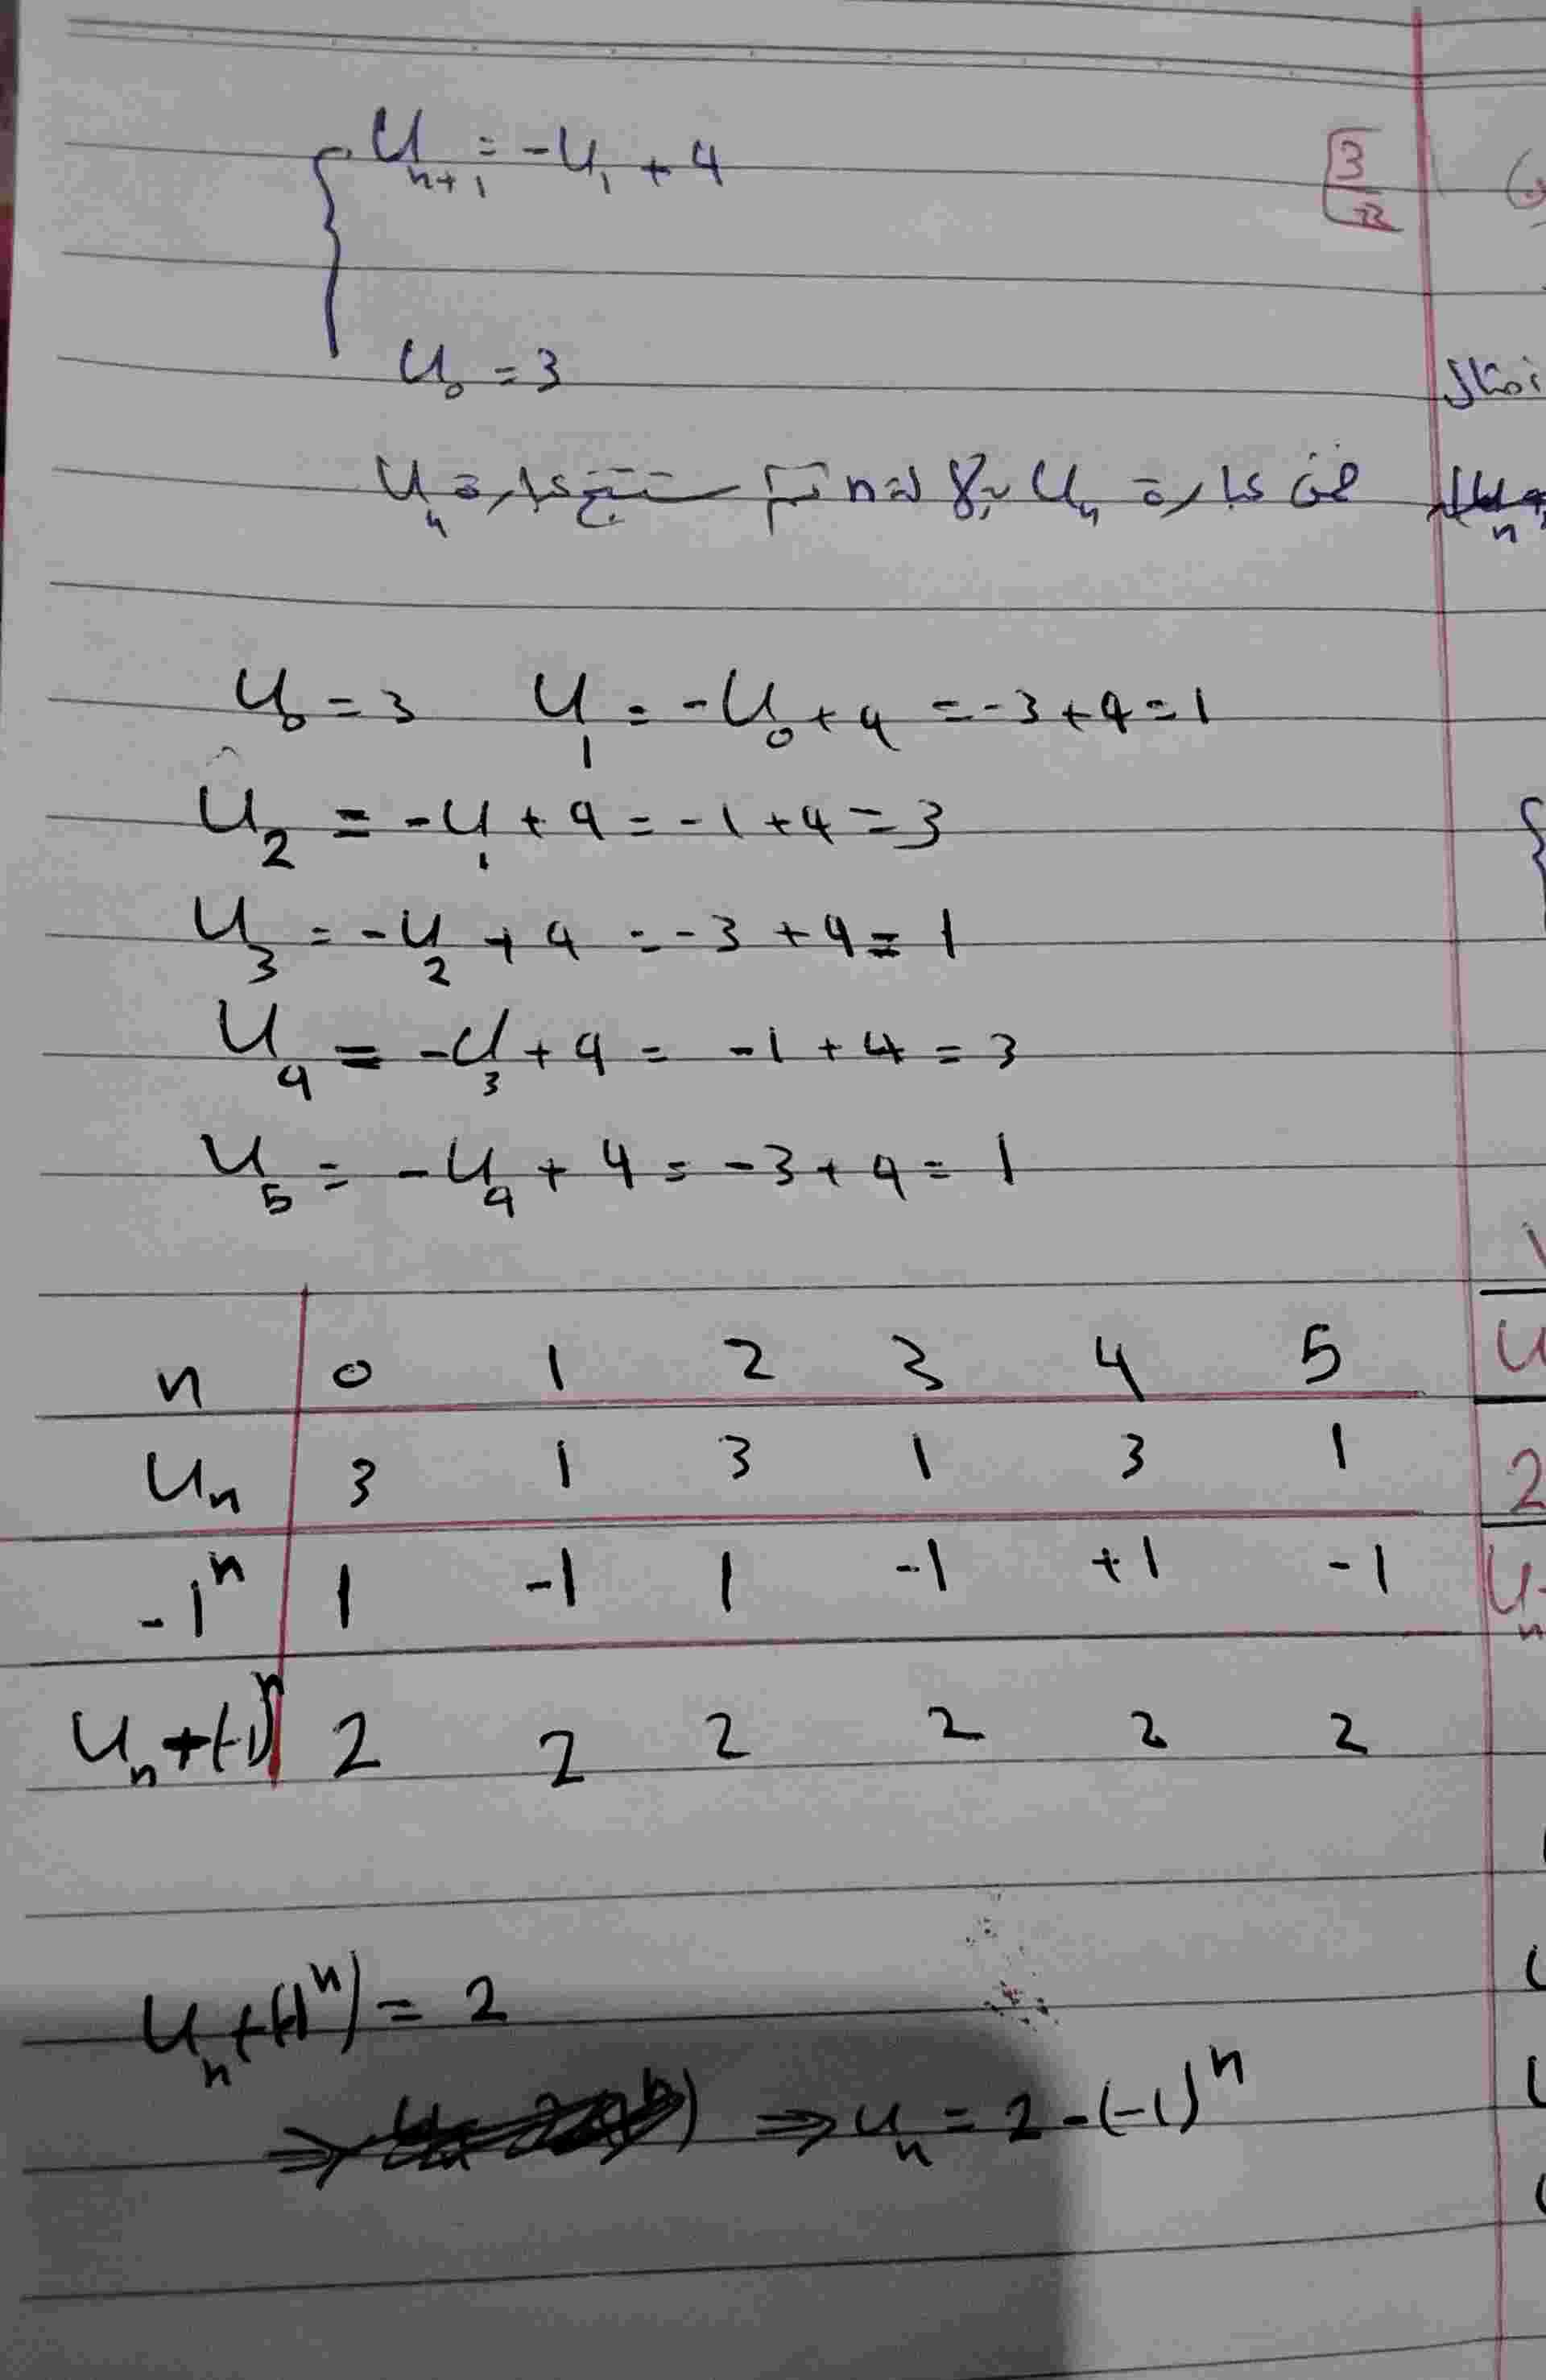 U_{n+1} = -U_1 + 4
U_0 = 3
خمن عبارة U_n بدلالة n ثم استنتج عبارة U_n
U_0 = 3 U_1 = -U_0 + 4 = -3 + 4 = 1
U_2 = -U_1 + 4 = -1 + 4 = 3
U_3 = -U_2 + 4 = -3 + 4 = 1
U_4 = -U_3 + 4 = -1 + 4 = 3
U_5 = -U_4 + 4 = -3 + 4 = 1
n 0 1 2 3 4 5
U_n 3 1 3 1 3 1
-1^n 1 -1 1 -1 +1 -1
U_n + (-1)^n 2 2 2 2 2 2
U_n + (-1^n) = 2
⇒ U_n = 2 - (-1)^n